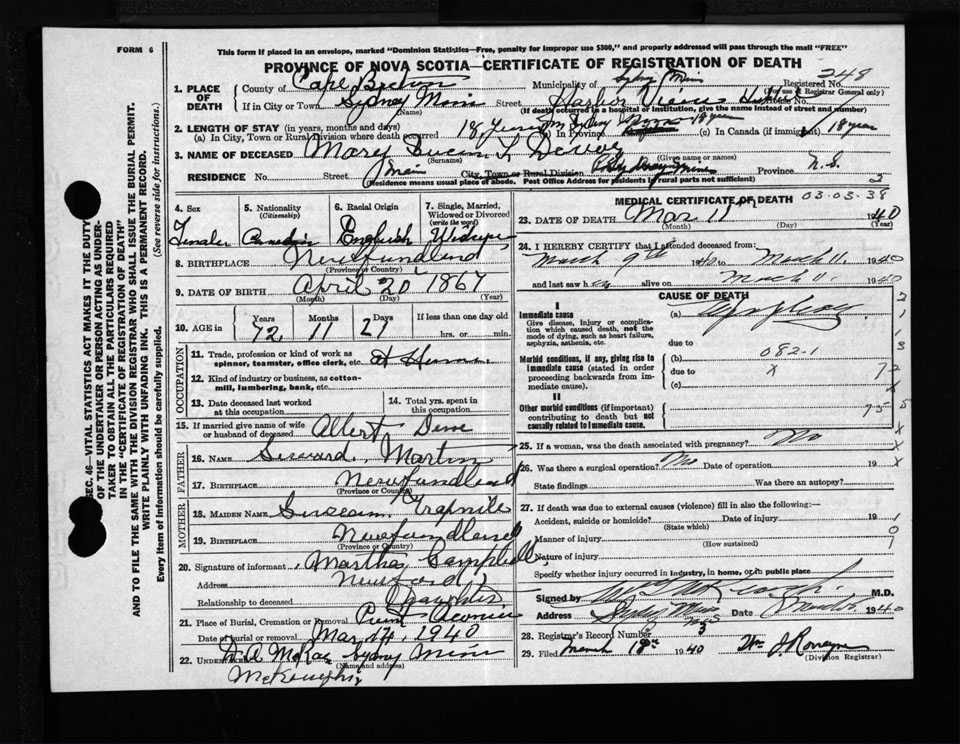 FORM 6
This form if placed in an envelope, marked "Dominion Statistics—Free, penalty for improper use $300," and properly addressed will pass through the mail "FREE"
PROVINCE OF NOVA SCOTIA—CERTIFICATE OF REGISTRATION OF DEATH
248
1. PLACE OF DEATH
County of Cape Breton Municipality of Sydney Mines Registered No.
If in City or Town Sydney Mines Street Harbor View
(Name) (If death occurred in a hospital or institution, give the name instead of street and number)
2. LENGTH OF STAY (in years, months and days)
(a) In City, Town or Rural Division where death occurred 18 years (b) in Province 18 years (c) In Canada (if immigrant) 18 years
3. NAME OF DECEASED Mary
(Surname) (Given name or names)
RESIDENCE No. Street Main City, Town or Rural Division Sydney Mines Province N.S.
(Residence means usual place of abode. Post Office Address for residents of rural parts not sufficient)
4. Sex
Female
5. Nationality (Citizenship)
Canadian
6. Racial Origin
English
7. Single, Married, Widowed or Divorced (write the word)
8. BIRTHPLACE Newfoundland
(Province or Country)
9. DATE OF BIRTH April 20 1867
(Month) (Day) (Year)
10. AGE in
Years Months Days If less than one day old
72 11 21 hrs. or min.
OCCUPATION
11. Trade, profession or kind of work as spinner, teamster, office clerk, etc. At Home
12. Kind of industry or business, as cotton-mill, lumbering, bank, etc.
13. Date deceased last worked at this occupation
14. Total yrs. spent in this occupation
15. If married give name of wife or husband of deceased Albert
FATHER
16. NAME Martin
17. BIRTHPLACE Newfoundland
(Province or Country)
MOTHER
18. MAIDEN NAME
19. BIRTHPLACE Newfoundland
(Province or Country)
20. Signature of informant Martha Campbell
Address
Relationship to deceased Daughter
21. Place of Burial, Cremation or Removal
Date of burial or removal Mar 14, 1940
22. UNDERTAKER D. A. McRae Sydney Mines
(Name and address)
MEDICAL CERTIFICATE OF DEATH
03-03-38
23. DATE OF DEATH Mar 11 1940
(Month) (Day) (Year)
24. I HEREBY CERTIFY that I attended deceased from:
March 9th 1940 to March 11, 1940
and last saw her alive on March 11, 1940
CAUSE OF DEATH
I
Immediate cause
Give disease, injury or complication which caused death, not the mode of dying, such as heart failure, asphyxia, asthenia, etc.
(a)
due to
Morbid conditions, if any, giving rise to immediate cause (stated in order proceeding backwards from immediate cause).
(b) 082-1
due to x
(c)
II
Other morbid conditions (if important) contributing to death but not causally related to immediate cause.
25. If a woman, was the death associated with pregnancy? No
26. Was there a surgical operation? No Date of operation 19
State findings Was there an autopsy?
27. If death was due to external causes (violence) fill in also the following:—
Accident, suicide or homicide? Date of injury 19
(State which)
Manner of injury
(How sustained)
Nature of injury
Specify whether injury occurred in industry, in home, or in public place
Signed by M.D.
Address Sydney Mines Date 1940
28. Registrar's Record Number 3
29. Filed March 18th 1940
(Division Registrar)
SEC. 46—VITAL STATISTICS ACT MAKES IT THE DUTY OF THE UNDERTAKER OR PERSON ACTING AS UNDERTAKER TO OBTAIN ALL THE PARTICULARS REQUIRED IN THE "CERTIFICATE OF REGISTRATION OF DEATH" AND TO FILE THE SAME WITH THE DIVISION REGISTRAR WHO SHALL ISSUE THE BURIAL PERMIT.
WRITE PLAINLY WITH UNFADING INK. THIS IS A PERMANENT RECORD.
Every item of Information should be carefully supplied. (See reverse side for instructions.)